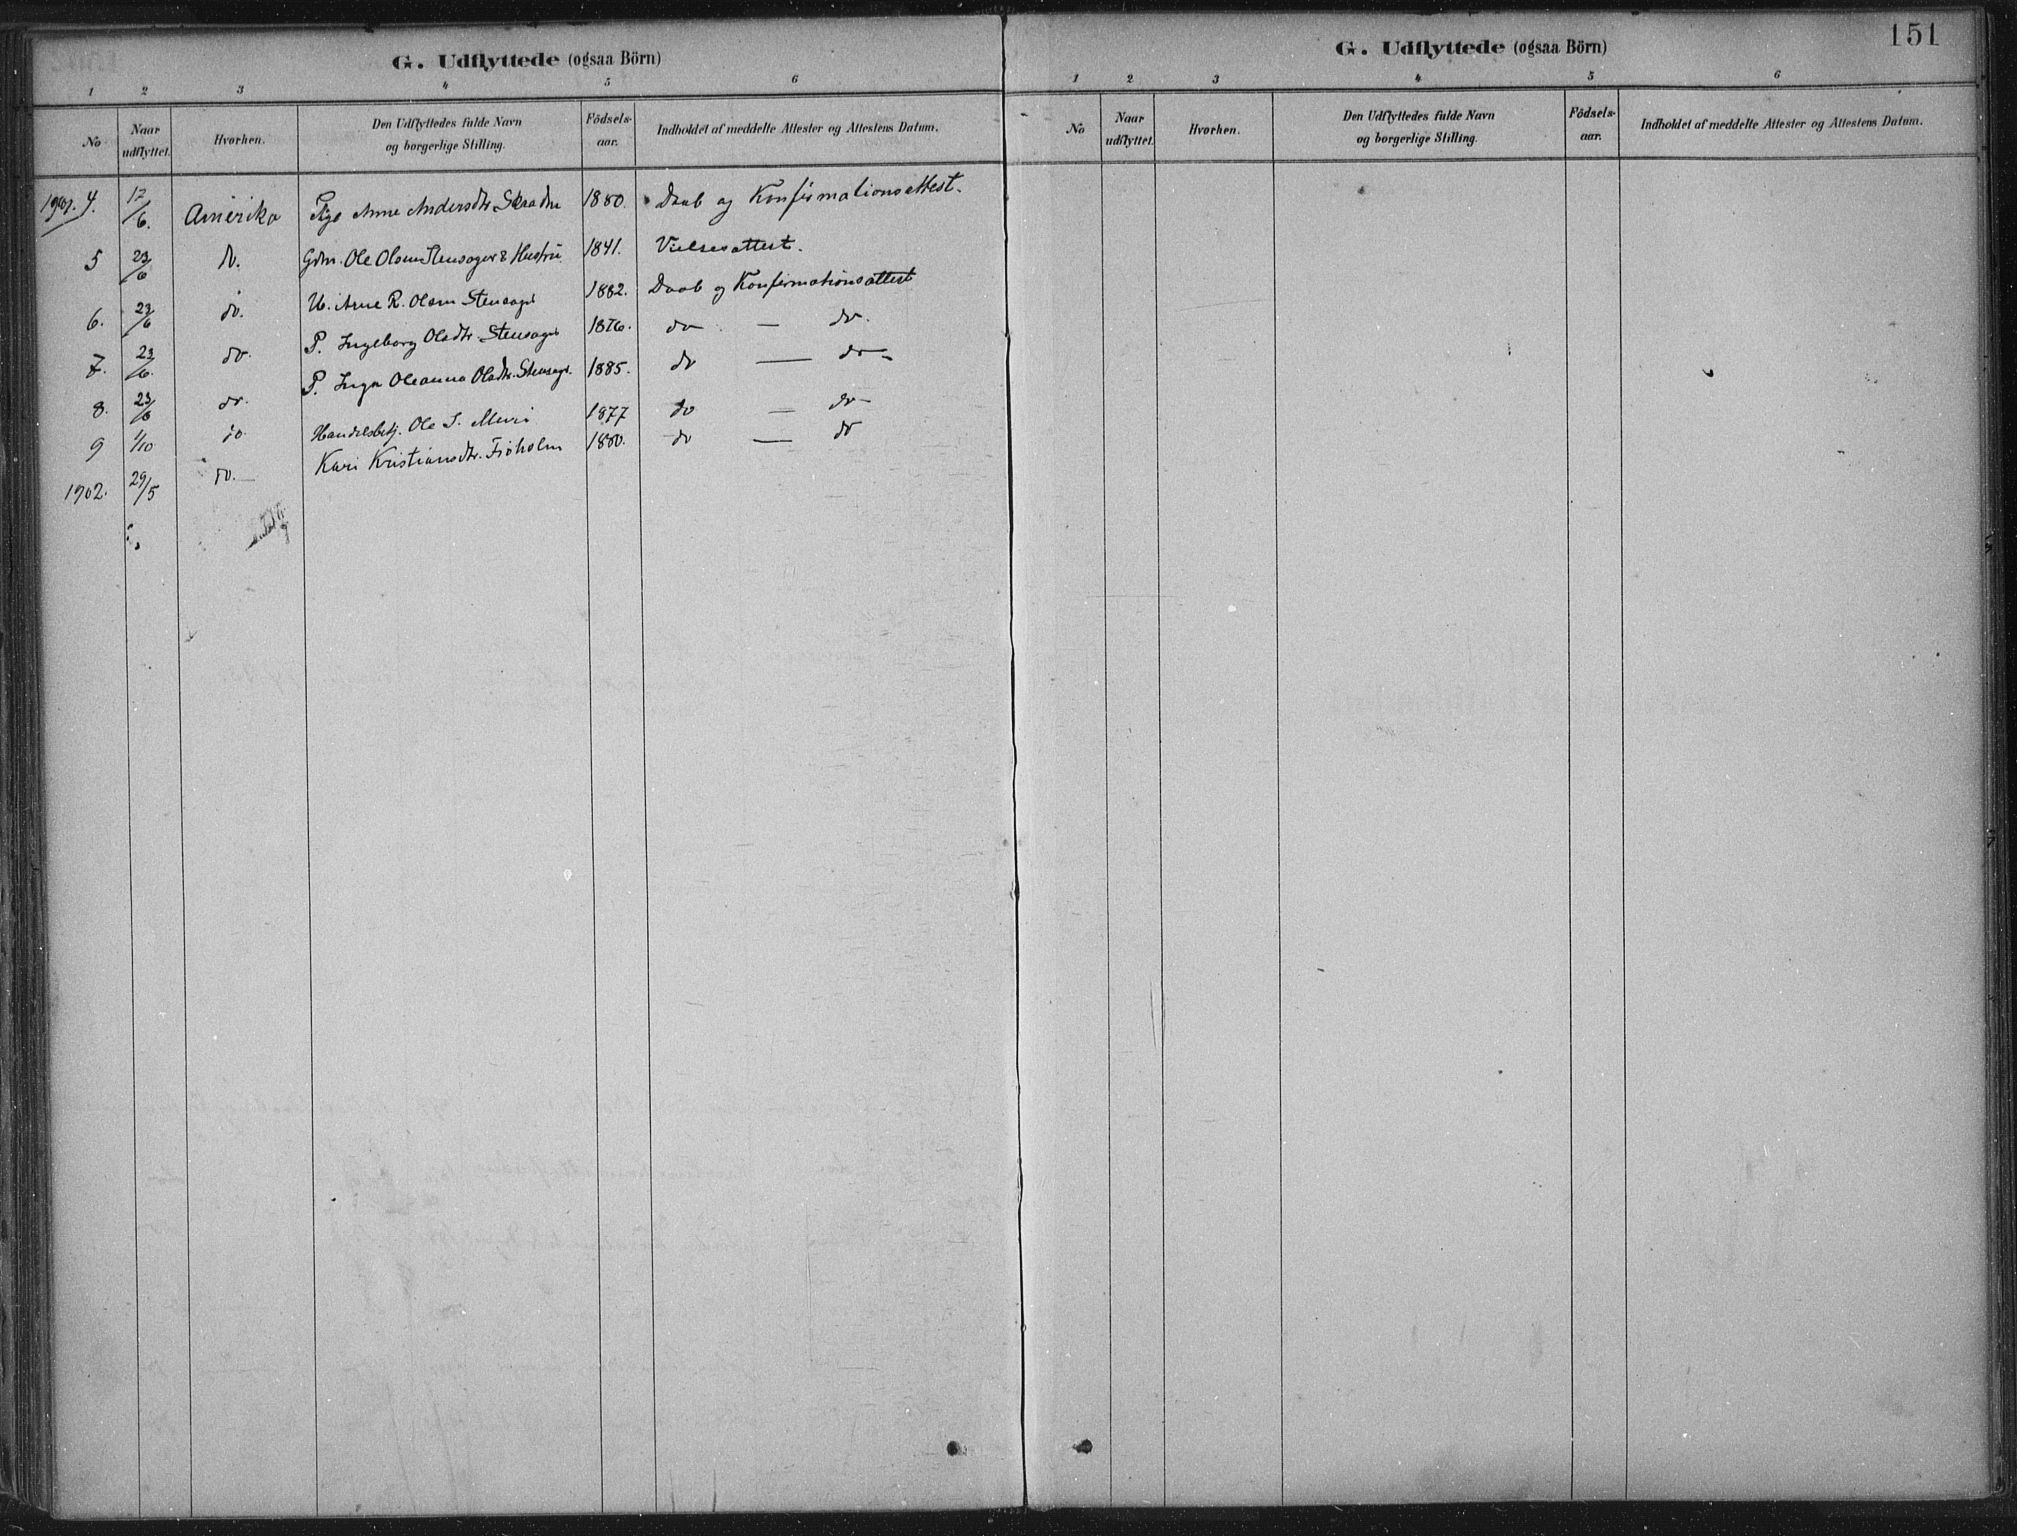 G. Udflyttede (ogsaa Börn)
1 2 3 4 5 6
No Naar udflyttet. Hvorhen. Den Udflyttedes fulde Navn og borgerlige Stilling. Födsels-aar. Indholdet af meddelte Attester og Attestens Datum.
1901. 4. 17/6. Amerika Pige Anne Andersdtr. 1880. Daab og Konfirmationsattest.
5 23/6 do. Gdm. Ole Olsen Stensager & Hustru 1841. Vielsesattest.
6. 23/6 do. U. Arne R. Olsen Stensager 1882. Daab og Konfirmationsattest
7. 23/6. do. P. Ingeborg Olsdtr. Stensager 1876. do — do.
8. 23/6 do. P. Inga Oleanna Olsdtr. Stensagr. 1885. do — do
9 1/10 do Handelsbetj. Ole S. 1877 do — do
1902. 29/5 do. Kari Kristiansdtr. 1880. do — do
151
G. Udflyttede (ogsaa Börn)
1 2 3 4 5 6
No Naar udflyttet. Hvorhen. Den Udflyttedes fulde Navn og borgerlige Stilling. Födsels-aar. Indholdet af meddelte Attester og Attestens Datum.